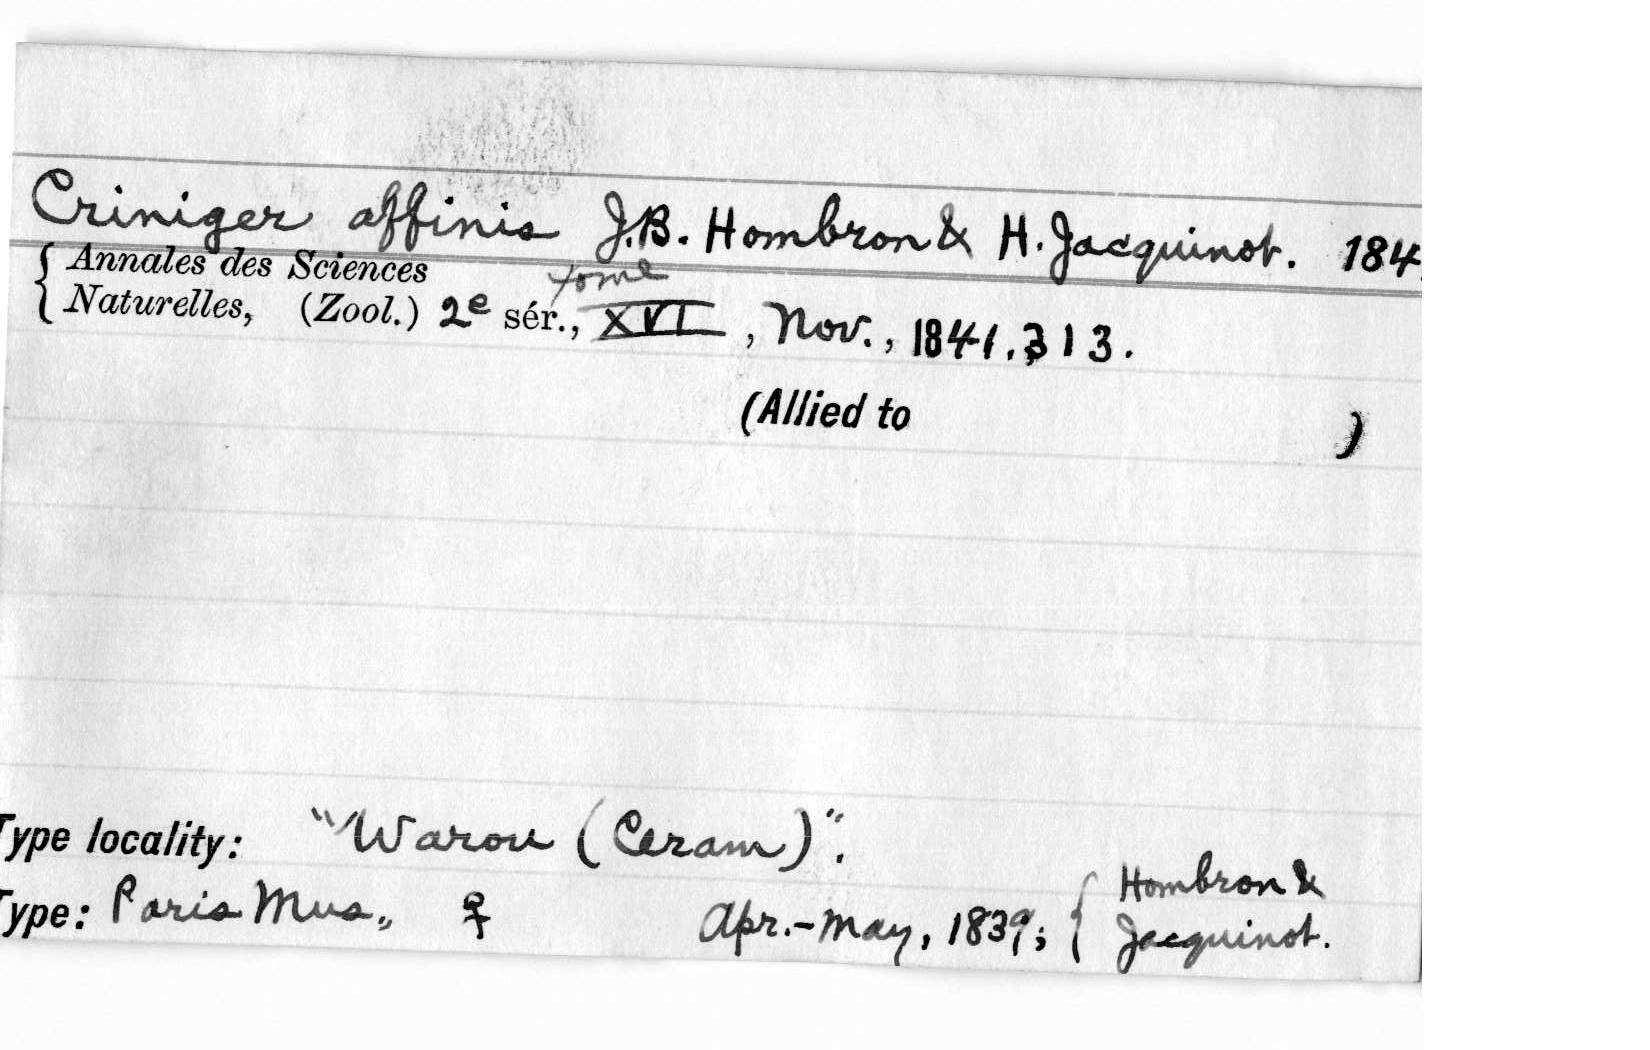 Criniger affinis J.B. Hombron & H. Jacquinot. 184
{ Annales des Sciences
Naturelles, (Zool.) 2e sér., tome XVI, Nov., 1841, 313.
(Allied to )
Type locality: "Warou (Ceram)".
Type: Paris Mus., ♀ Apr.-May, 1839; { Hombron & Jacquinot.